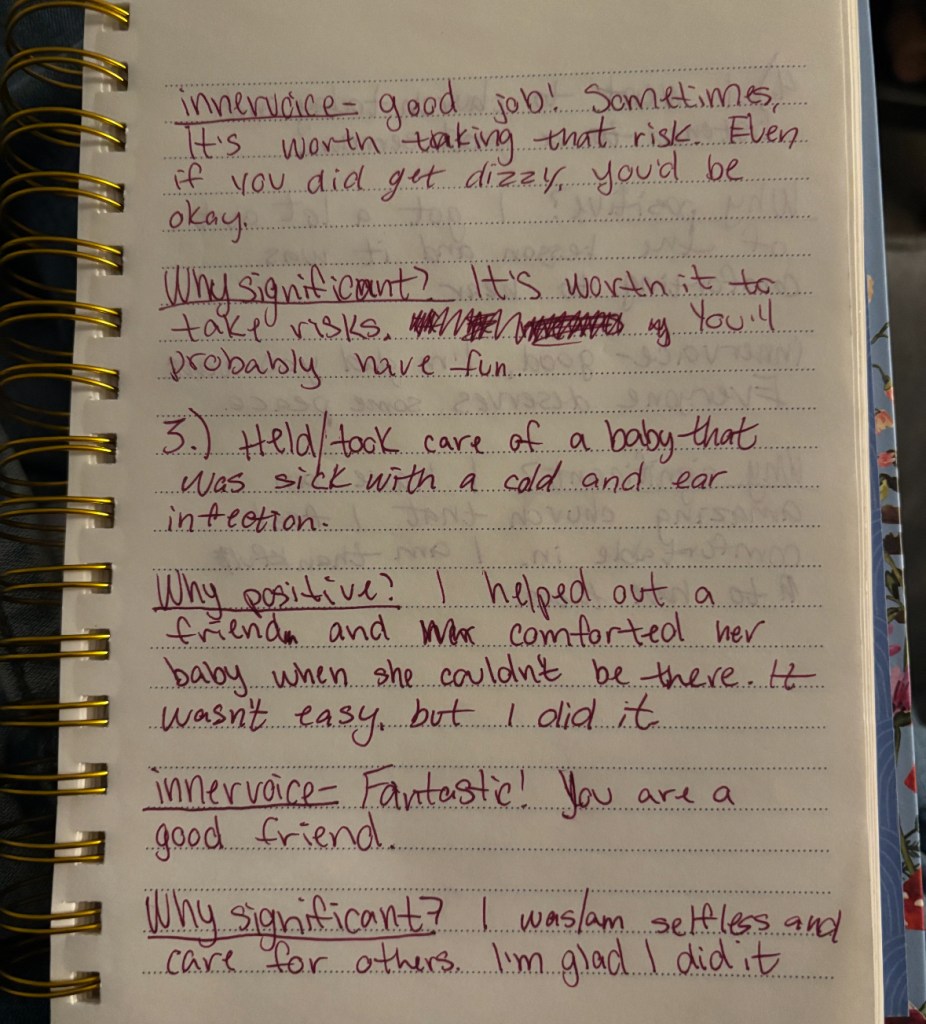 innervoice- good job! Sometimes,
It's worth taking that risk. Even
if you did get dizzy, you'd be
okay.
Why significant? It's worth it to
take risks. You'll
probably have fun.
3.) Held/took care of a baby that
was sick with a cold and ear
infection.
Why positive? I helped out a
friend and comforted her
baby when she couldn't be there. It
wasn't easy, but I did it
innervoice- Fantastic! You are a
good friend.
Why significant? I was/am selfless and
care for others. I'm glad I did it